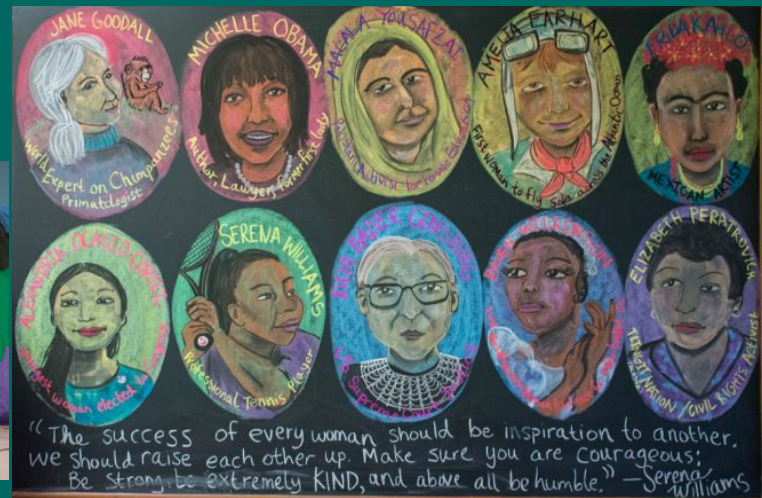 JANE GOODALL
World Expert on Chimpanzees
Primatologist
MICHELLE OBAMA
Author, Lawyer, former first lady
MALALA YOUSAFZAI
Pakistani Activist for Female Education
AMELIA EARHART
First Woman to fly Solo across the Atlantic Ocean
FRIDA KAHLO
MEXICAN ARTIST
ALEXANDRIA OCASIO-CORTEZ
youngest woman elected to Congress
SERENA WILLIAMS
Professional Tennis Player
RUTH BADER GINSBURG
Supreme Court Justice
WILKINSON
ELIZABETH PERATROVICH
TLINGIT NATION / CIVIL RIGHTS Activist
"The success of every woman should be inspiration to another.
We should raise each other up. Make sure you are courageous:
Be strong, be extremely KIND, and above all be humble." — Serena
Williams